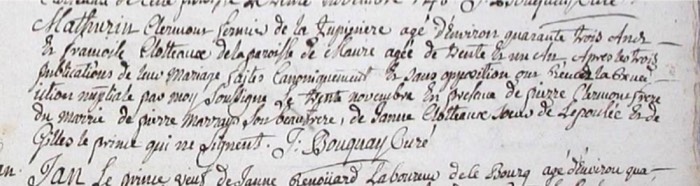 Mathurin Clermont fermier de la Tupigniere agé d'Environ quarante trois Ans
Et francoise Clotteaux de la paroisse de Maure agée de trente Et un An, Apres les trois
publications de leur mariage faites Canoniquement Et sans opposition ont Receu la Bene
diction nuptiale par moy Soussigné le trente novembre En presence de pierre Clermont frere
du marié de pierre Marraud son beaufrere, de Janne Clotteaux soeur de Lepousée Et de
Gilles le prince qui ne signent. J: Bouquay Curé
Jan Le prince veuf de Janne Renouard Laboureur de le Bourg agé d'Environ qua